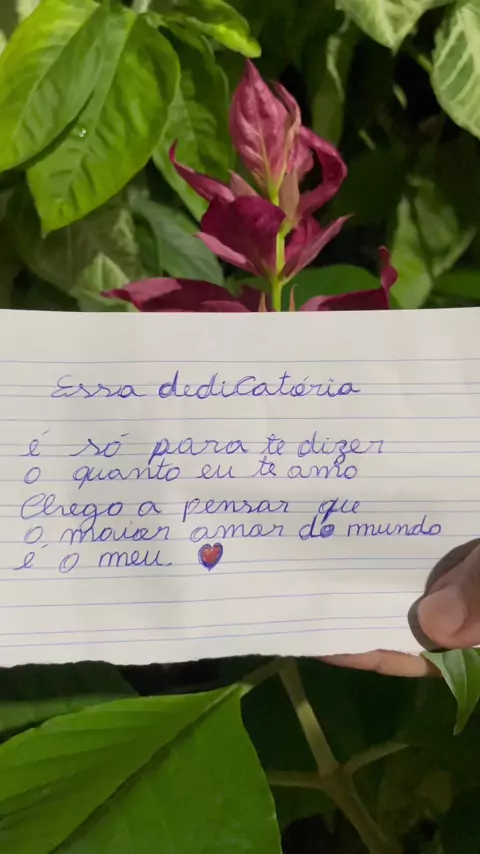 Essa dedicatória
é só para te dizer
o quanto eu te amo
Chego a pensar que
o maior amor do mundo
é o meu.